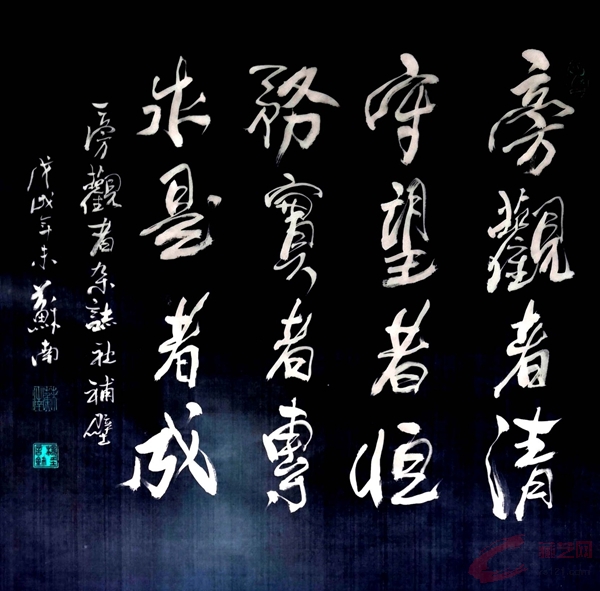 旁觀者清
守望者恒
務實者專
求是者成
旁觀者杂誌社補壁
戊戌年末蘇南